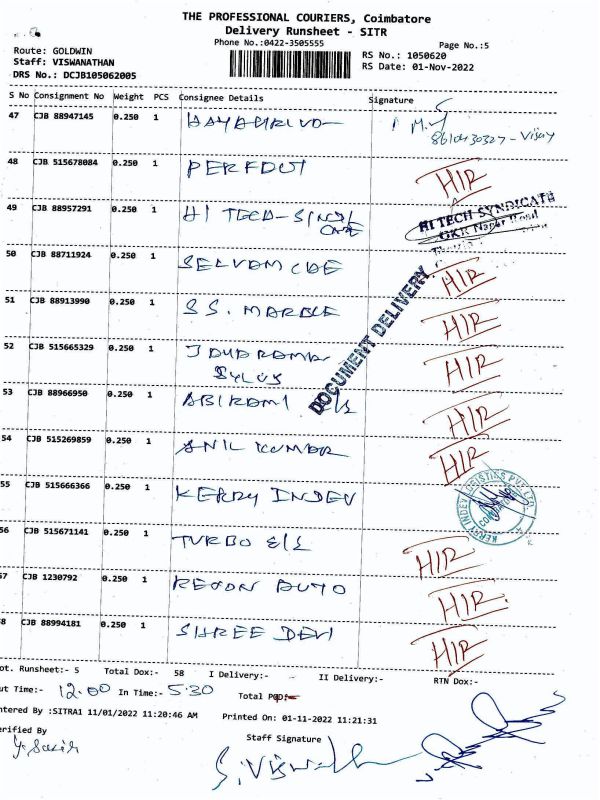 THE PROFESSIONAL COURIERS, Coimbatore
Delivery Runsheet - SITR
Phone No.:0422-3505555
Page No.:5
Route: GOLDWIN
RS No.: 1050620
Staff: VISWANATHAN
RS Date: 01-Nov-2022
DRS No.: DCJB105062005
S No Consignment No Weight PCS Consignee Details Signature
47 CJB 88947145 0.250 1
8610430327 - Vijay
48 CJB 515678084 0.250 1 PERFECT HIR
49 CJB 88957291 0.250 1 HI TECH -
HI TECH SYNDICATE
50 CJB 88711924 0.250 1 HIR
51 CJB 88913990 0.250 1 SS. MARBLE HIR
DOCUMENT DELIVERY
52 CJB 515665329 0.250 1 HIR
53 CJB 88966950 0.250 1 ABIRAMI E/S HIR
54 CJB 515269859 0.250 1 ANIL KUMAR HIR
55 CJB 515666366 0.250 1 KERRY INDEV
KERRY INDEV LOGISTICS PVT LTD
56 CJB 515671141 0.250 1 TURBO E/S HIR
57 CJB 1230792 0.250 1 AUTO HIR
58 CJB 88994181 0.250 1 SHREE DEVI HIR
ot. Runsheet:- 5 Total Dox:- 58 I Delivery:- II Delivery:- RTN Dox:-
ut Time:- 12.00 In Time:- 5.30 Total POD:-
ntered By :SITRA1 11/01/2022 11:20:46 AM Printed On: 01-11-2022 11:21:31
erified By
Staff Signature